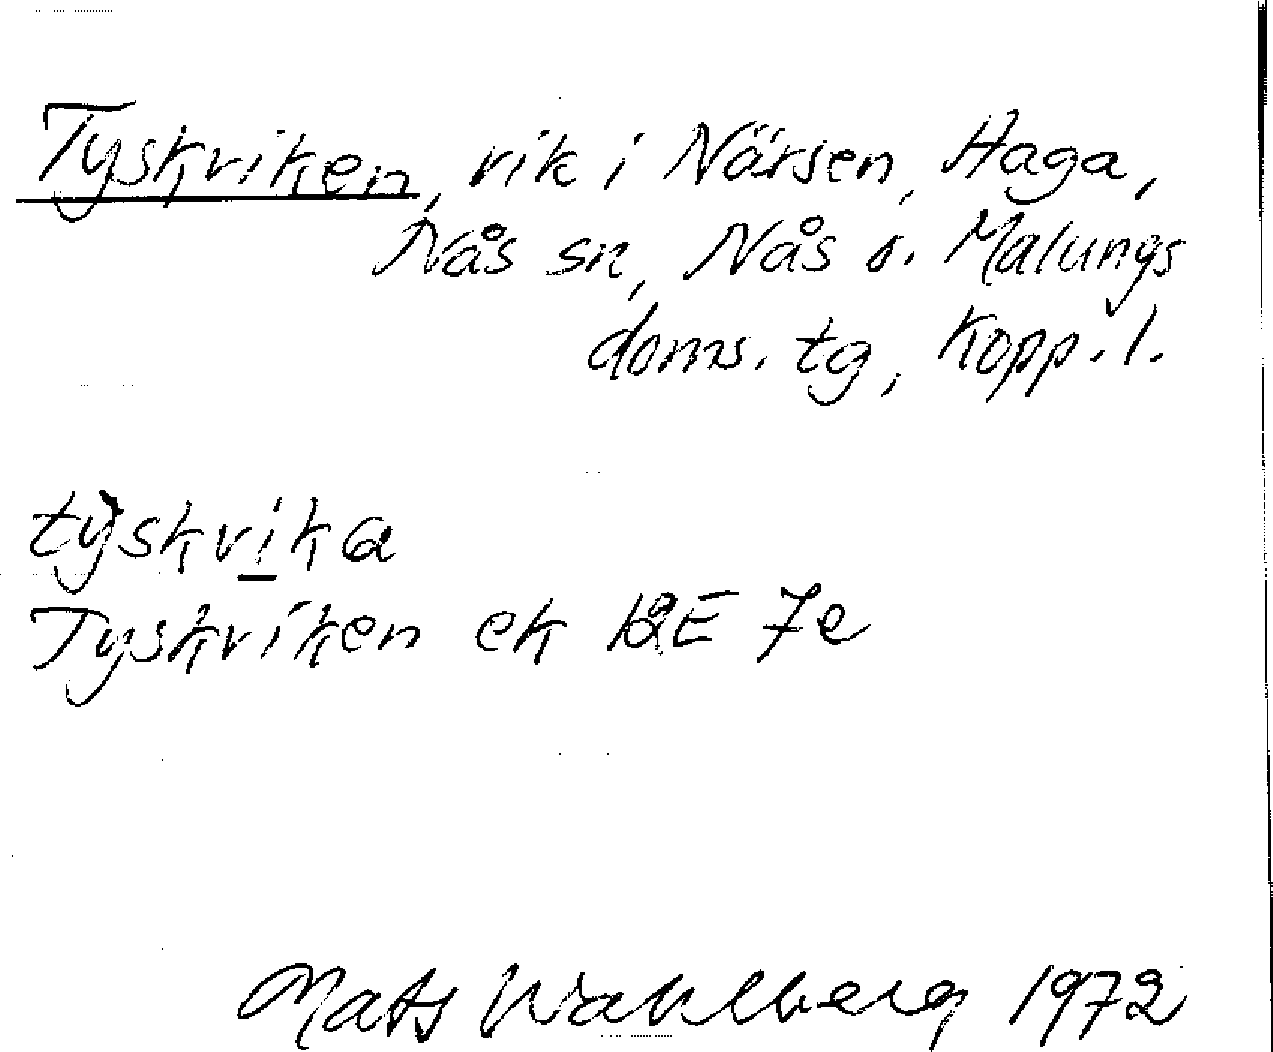 Tyskviken, vik i Närsen, Haga,
Nås sn, Nås o. Malungs
doms. tg, Kopp. l.
tỳskvi̲ka
Tyskviken ek 12E 7e
Mats Wahlberg 1972